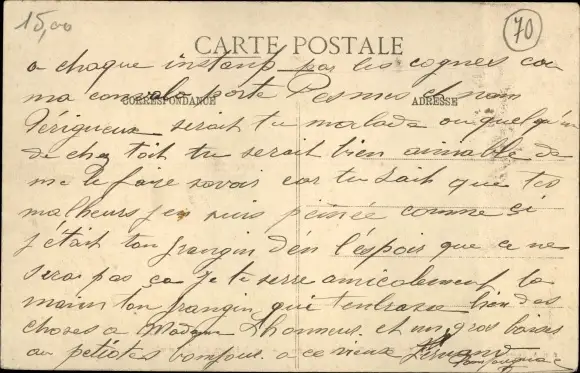 15,00
70
CARTE POSTALE
a chaque instant par les cognes car
ma convalo porte Pesmes et non
CORRESPONDANCE
ADRESSE
Périgueux serait tu malade ou quelqu'un
de chez toit tu serait bien aimable de
me le faire savoir car tu sait que tes
malheurs j'en suis peinée comme si
j'était ton frangin d'en l'espoir que ce ne
serai pas ça je te serre amicalement la
main ton frangin qui t'enbrasse bien des
choses a Madame Lhonneux et un gros baiser
au petiotes bonjour a ce vieux Fernand